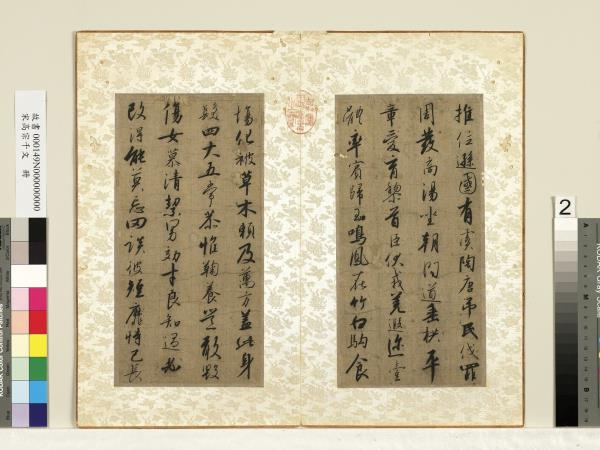 推位遜國有虞陶唐吊民伐罪
周發商湯坐朝問道垂拱平
章愛育黎首臣伏戎羌遐邇壹
體率賓歸王鳴鳳在竹白駒食
場化被草木賴及萬方蓋此身
髮四大五常恭惟鞠養豈敢毀
傷女慕清潔男効才良知過必
改得能莫忘罔談彼短靡恃己長
故書000149N000000000
宋高宗千文 冊
2